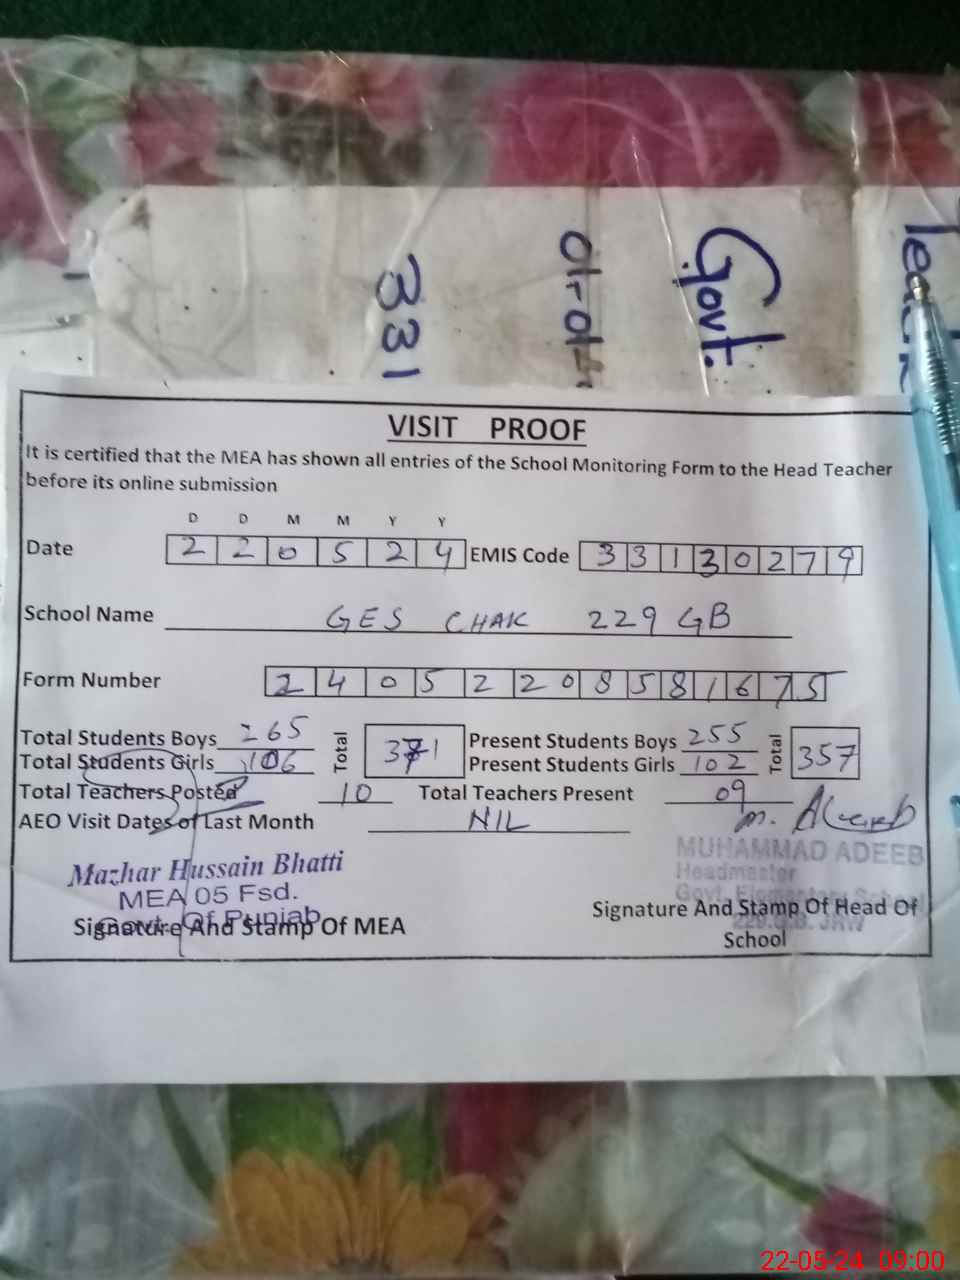 Govt.
331
VISIT PROOF
It is certified that the MEA has shown all entries of the School Monitoring Form to the Head Teacher
before its online submission
D D M M Y Y
Date 2 2 0 5 2 4 EMIS Code 3 3 1 3 0 2 7 9
School Name GES CHAK 229 GB
Form Number 2 4 0 5 2 2 0 8 5 8 1 6 7 5
Total Students Boys 265 Total 371 Present Students Boys 255 Total 357
Total Students Girls 106 Present Students Girls 102
Total Teachers Posted 10 Total Teachers Present 09
AEO Visit Dates of Last Month NIL
m. Adeeb
Mazhar Hussain Bhatti
MEA 05 Fsd.
Govt. Of Punjab
Signature And Stamp Of MEA
MUHAMMAD ADEEB
Headmaster
Govt. Elementary School
229.G.B. JRW
Signature And Stamp Of Head Of
School
22-05-24 09:00